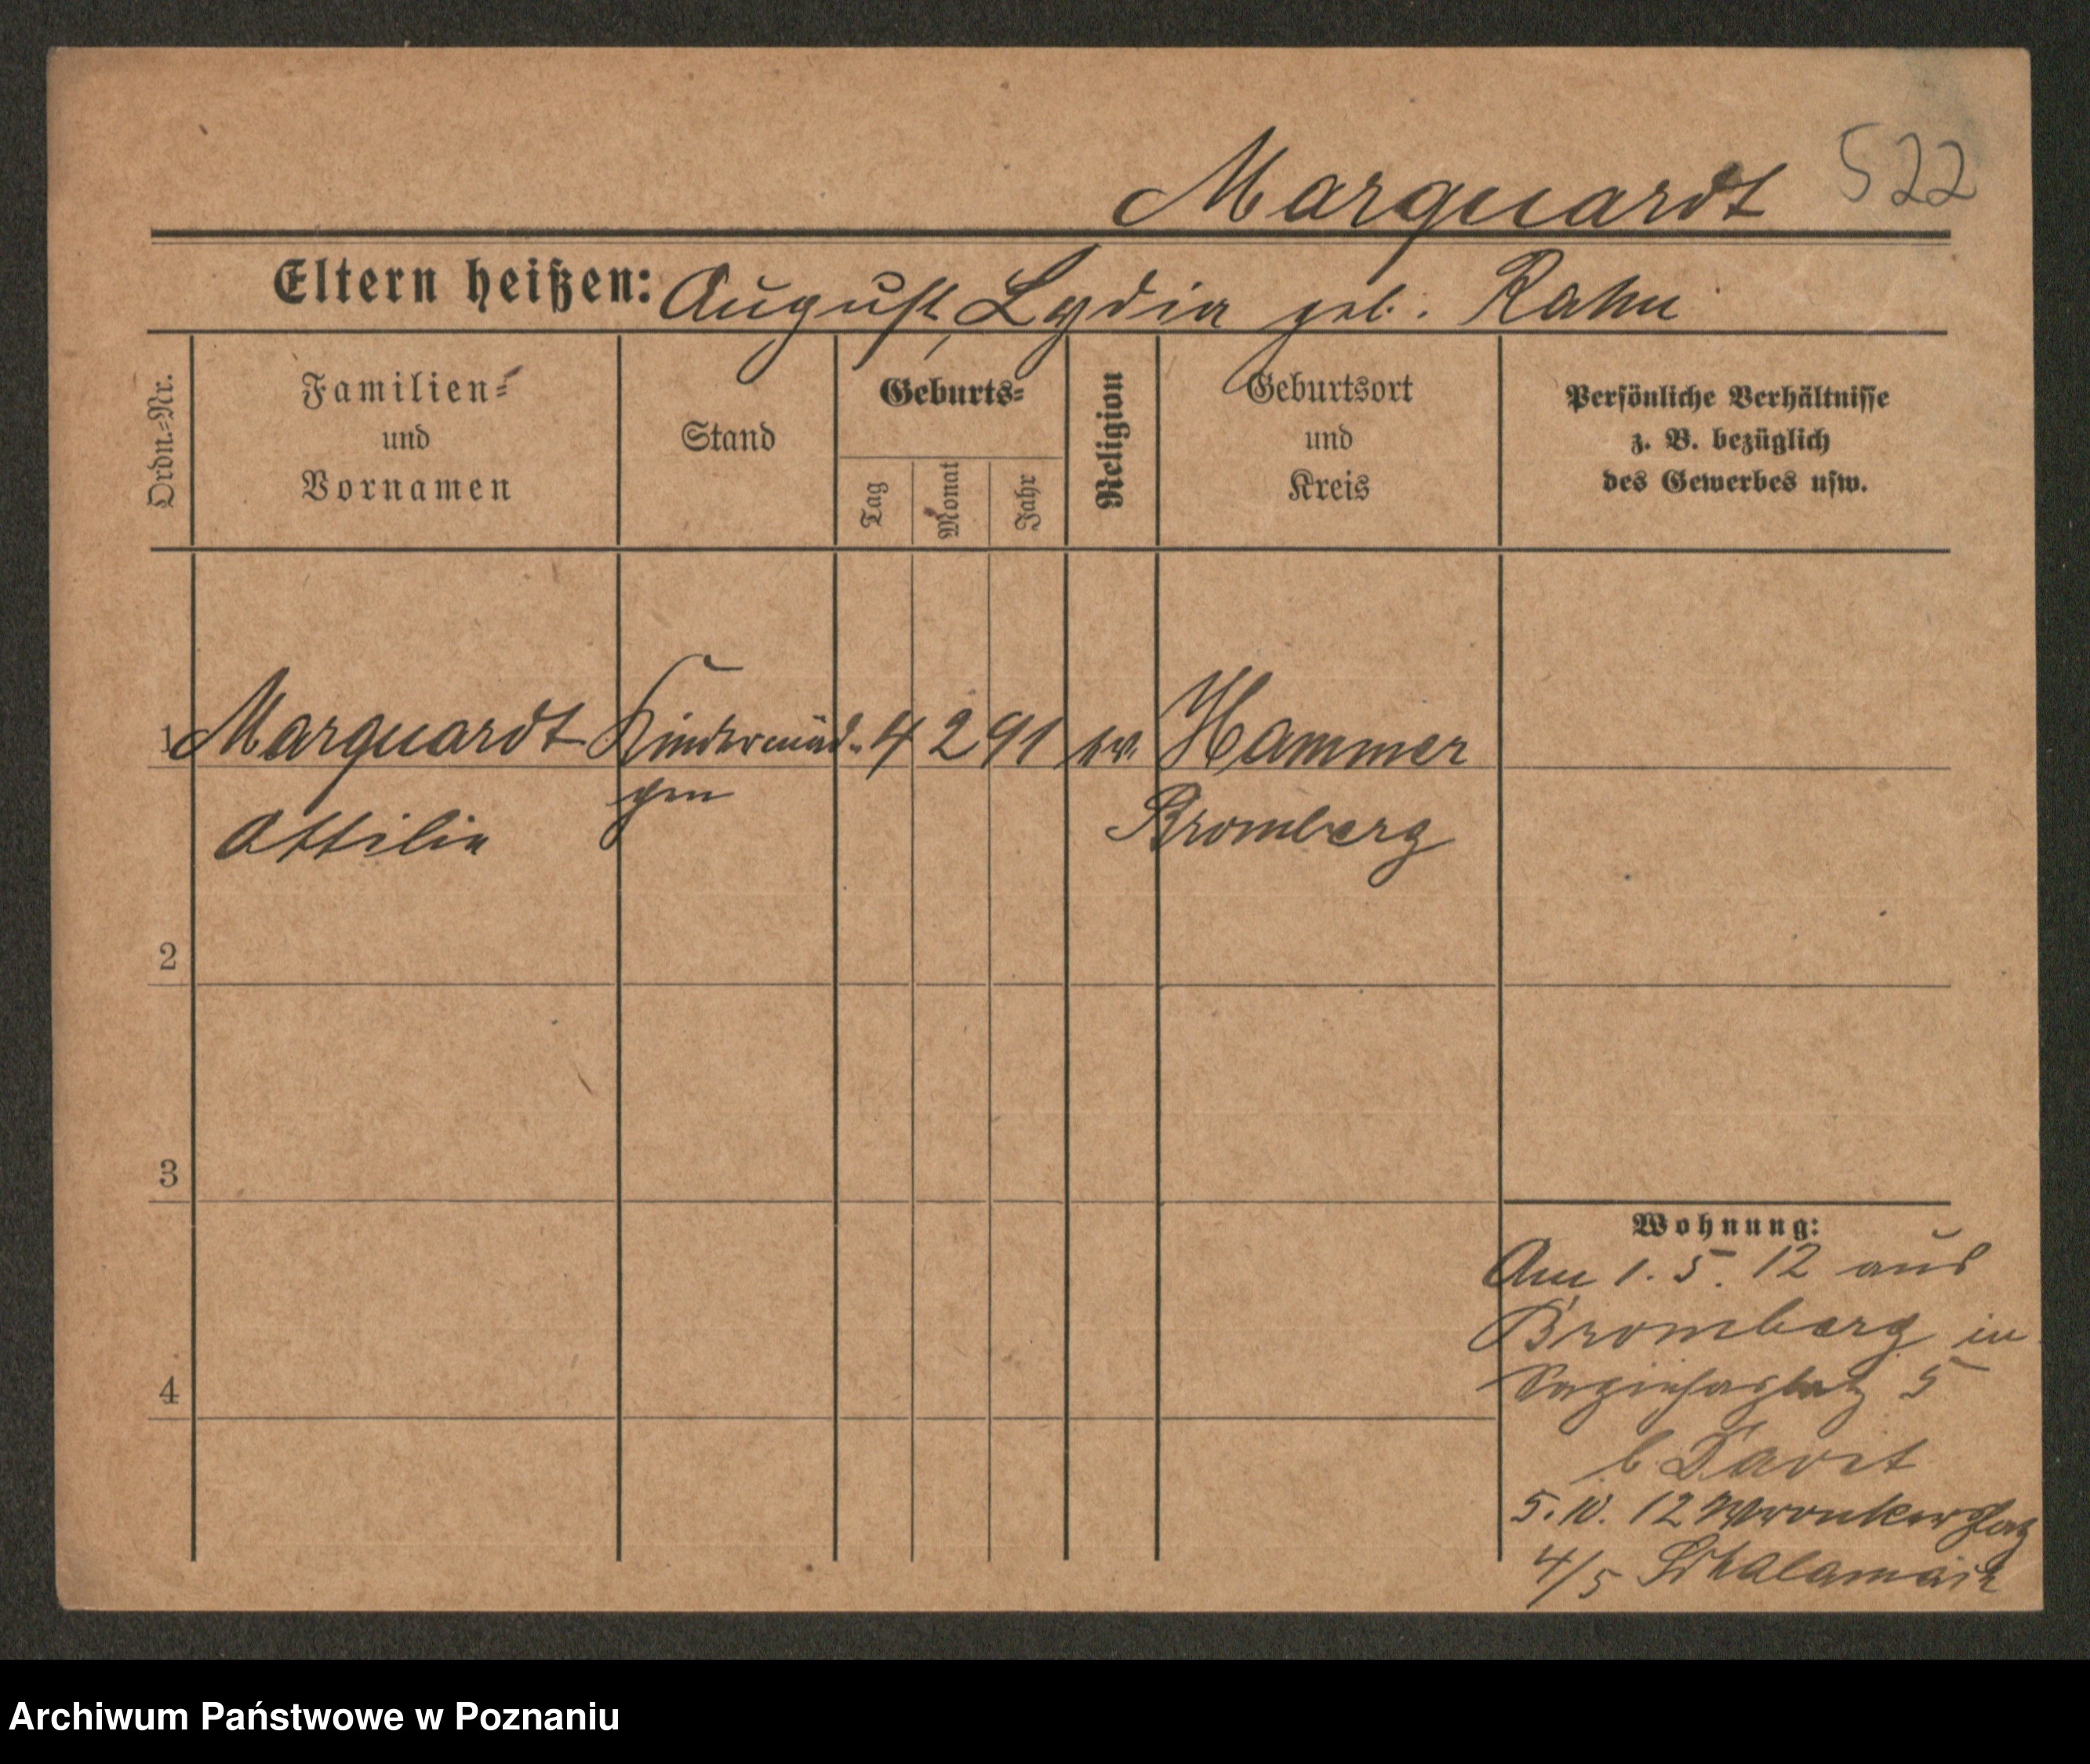 Marquardt 522
Eltern heißen: August, Lydia geb. Rahn
Ordn.-Nr.
Familien-
und
Vornamen
Stand
Geburts-
Tag
Monat
Jahr
Religion
Geburtsort
und
Kreis
Persönliche Verhältnisse
z. B. bezüglich
des Gewerbes usw.
1 Marquardt Kindermäd- 4 2 91 ev. Hammer
Ottilie chen Bromberg
2
3
4
Wohnung:
Am 1. 5. 12 aus
Bromberg in
Sapiehaplatz 5
b. Davit
5. 10. 12 Wronkerplatz
4/5
Archiwum Państwowe w Poznaniu